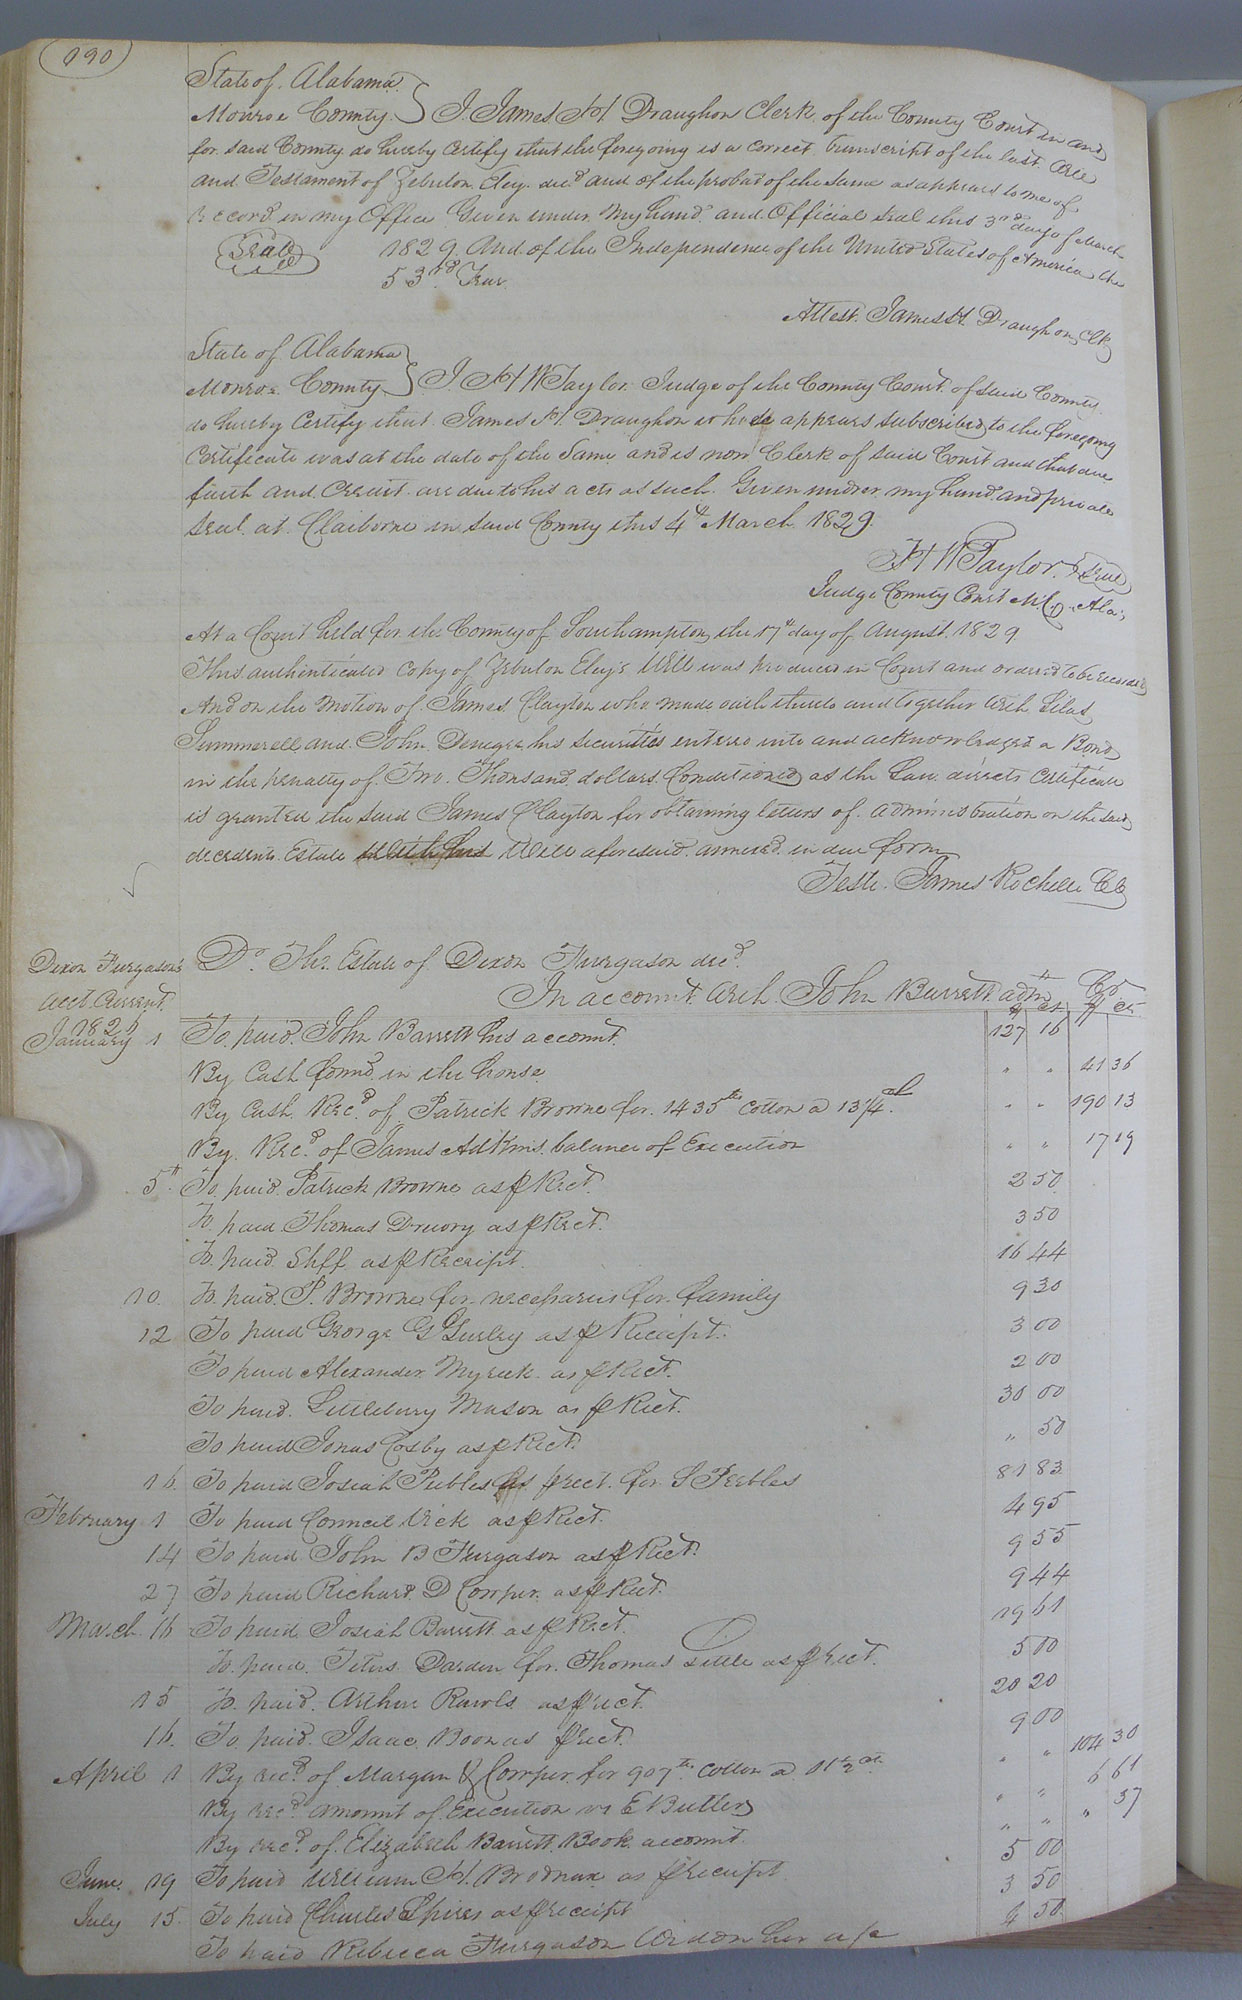 190
State of Alabama
Monroe County } I James H Draughon Clerk of the County Court in and
for said County do hereby certify that the foregoing is a correct transcript of the last Will
and Testament of Zebulon Eley decd and of the probat of the same as appears to me of
Record in my Office Given under my hand and Official seal this 3rd day of March
Seal 1829. And of the Independence of the United States of America the
53rd Year.
Attest. James H. Draughon, Clk
State of Alabama
Monroe County } I H W Taylor Judge of the County Court of said County
do hereby Certify that James H. Draughon whose appears subscribed to the foregoing
Certificate was at the date of the Same and is now Clerk of said Court and that due
faith and Credit are due to his acts as such. Given under my hand and private
seal at Claiborne in said County this 4th March 1829.
H W Taylor Seal
Judge County Court M. Cy. Ala;
At a Court held for the County of Southampton the 17th day of August 1829
This authenticated copy of Zebulon Eley's Will was produced in Court and ordered to be recorded
And on the motion of James Clayton who made oath thereto and together with Silas
Summerell and John his securities entered into and acknowledged a Bond
in the penalty of Two Thousand dollars Conditioned as the Law directs certificate
is granted the said James Clayton for obtaining letters of administration on the said
decedents Estate with his Will aforesaid annexed in due form
Teste. James Rochelle CC
Dixon Furgason's
acct Current
Dr. The Estate of Dixon Furgason decd
In account with John Barrett adm Cr
$ Cts $ Cts
January 1 To paid John Barrett his account 127 16
By Cash found in the house " " 41 36
By Cash Recd of Patrick Browne for 1435 lb Cotton @ 13 1/4 ct. " " 190 13
By Recd of James Adkins balance of Execution " " 17 19
5th To paid Patrick Browne as p Rect. 2 50
To paid Thomas Drewry as p Rect. 3 50
To paid Shff as p Receipt. 16 44
10. To paid P. Browne for necessaries for family 9 30
12 To paid George G Gurley as p Receipt. 3 00
To paid Alexander Myrick as p Rect. 2 00
To paid Littlebury Mason as p Rect. 30 00
To paid Jonas Cosby as p Rect. " 50
16. To paid Josiah Peebles as p rect. for S Peebles 81 83
February 1 To paid Council Vick as p Rect. 4 95
14 To paid John B Furgason as p Rect. 9 55
27 To paid Richard D Cowper as p Rect. 9 44
March 16 To paid Josiah Barrett as p Rect. 19 61
To paid Titus Darden for Thomas Little as p rect. 5 00
15 To paid Arthur Rawls as p rect. 20 20
16. To paid Isaac Boon as p rect. 9 00
April 1 By recd of Morgan & Cowper for 907 lb Cotton @ 11 1/2 ct " " 104 30
By recd amount of Execution vs E Butler " " 6 61
By recd of Elizabeth Barrett Book account " " " 37
June 19 To paid William H. Brodnax as p receipt 5 00
July 15 To paid Charles Spiers as p receipt 3 50
To paid Rebecca Furgason Widow her a/c 4 50